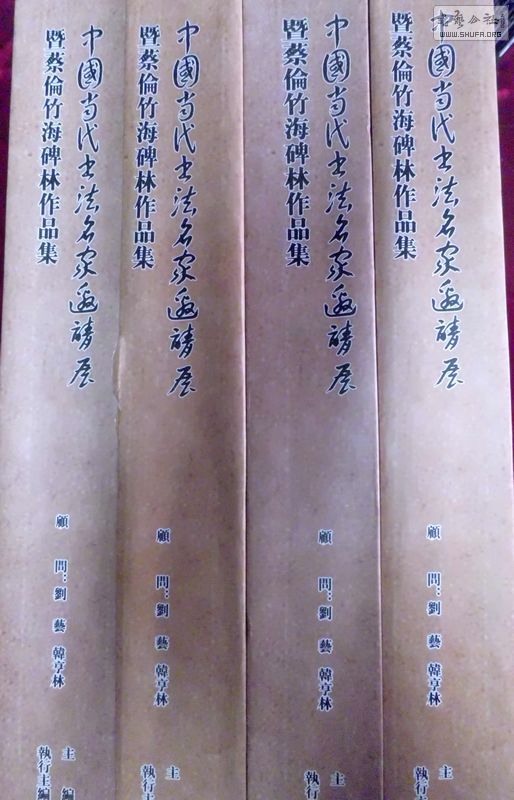 書藝公社
WWW.SHUFA.ORG
中國当代书法名家邀請展
暨蔡倫竹海碑林作品集
顧 問:劉 藝 韓亨林
主 編
執行主編
中國当代书法名家邀請展
暨蔡倫竹海碑林作品集
顧 問:劉 藝 韓亨林
主
執行主
中國当代书法名家邀請展
暨蔡倫竹海碑林作品集
顧 問:劉 藝 韓亨林
主
執行主
中國当代书法名家邀請展
暨蔡倫竹海碑林作品集
顧 問:劉 藝 韓亨林
主
執行主